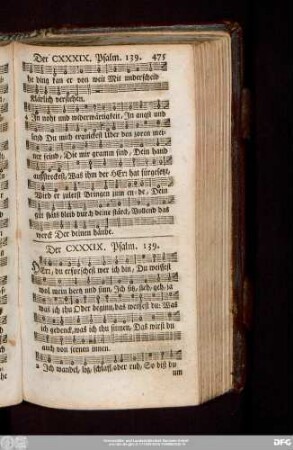 Der CXXXIX. Psalm. 139. 475
he ding kan er von weit Mit underscheid
klärlich verstehen.
4 In noht und widerwärtigkeit, In angst und
leyd Du mich erquickst über den zorn mei-
ner feind, Die mir gramm sind, Dein hand
außstreckest, Was ihm der HErr hat fürgesetzt,
Wird er zuletst Bringen zum en-de, Dein
güt stäts bleib durch deine stärck, Vollend das
werck Der deinen hände.
Der CXXXIX. Psalm. 139.
O HErr, du erforschest wer ich bin, Du weissest
wol mein hertz und sinn, Ich sitz, steh, geh, ja
was ich thu Oder beginn, das weissest du: Was
ich gedenck, was ich thu sinnen, Das wirst du
auch von fernen innen.
2 Ich wandel, lig, schlaff, aber ruh, So bist du
um